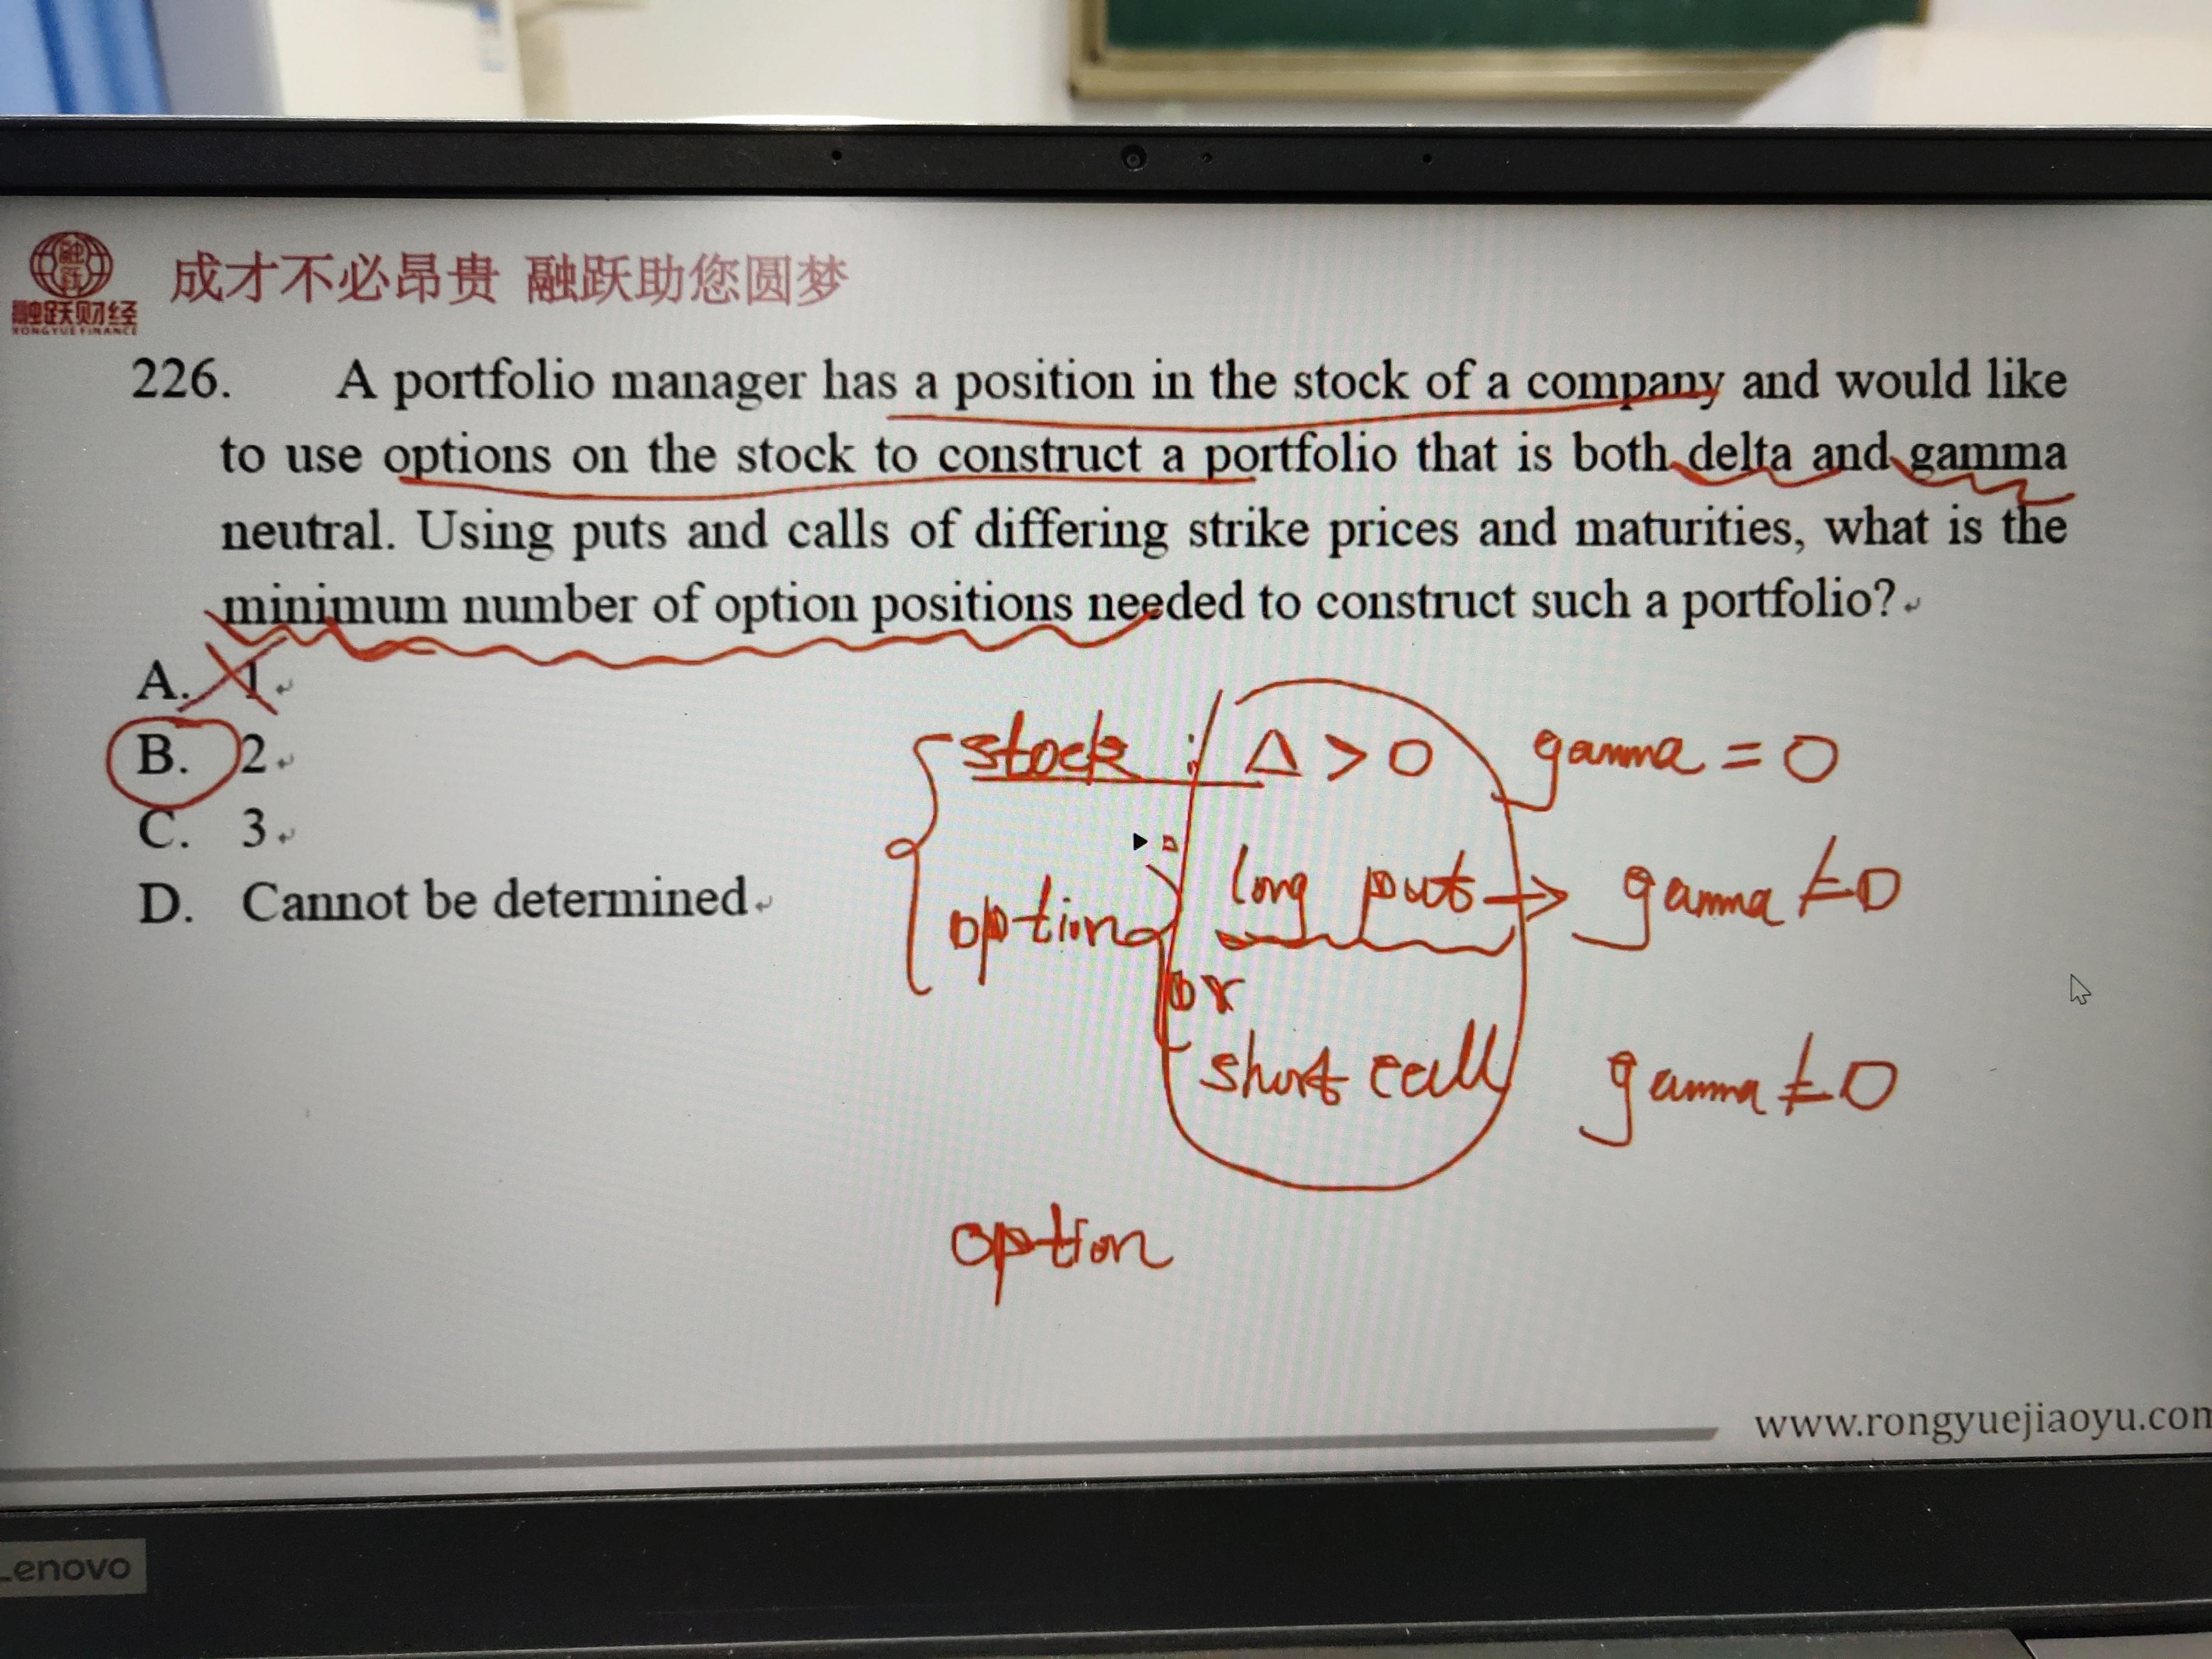 成才不必昂贵 融跃助您圆梦
融跃
融跃财经
RONGYUE FINANCE
226. A portfolio manager has a position in the stock of a company and would like
to use options on the stock to construct a portfolio that is both delta and gamma
neutral. Using puts and calls of differing strike prices and maturities, what is the
minimum number of option positions needed to construct such a portfolio?
A. 1
B. 2
C. 3
D. Cannot be determined
stock : Δ > 0 gamma = 0
option long put → gamma ≠ 0
or
short call gamma ≠ 0
option
www.rongyuejiaoyu.com
Lenovo